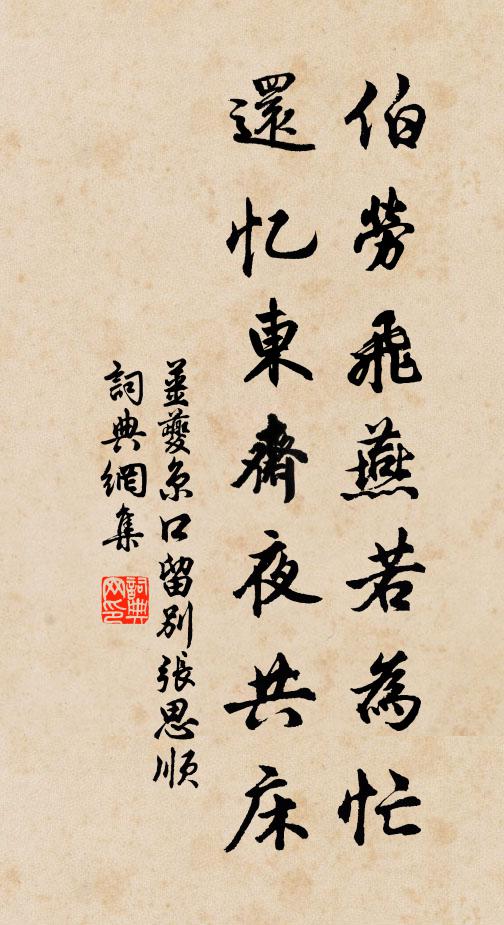 伯勞飛燕若為忙
還忆東齋夜共床
姜夔京口留別張思順
詞典網集
詞典網印